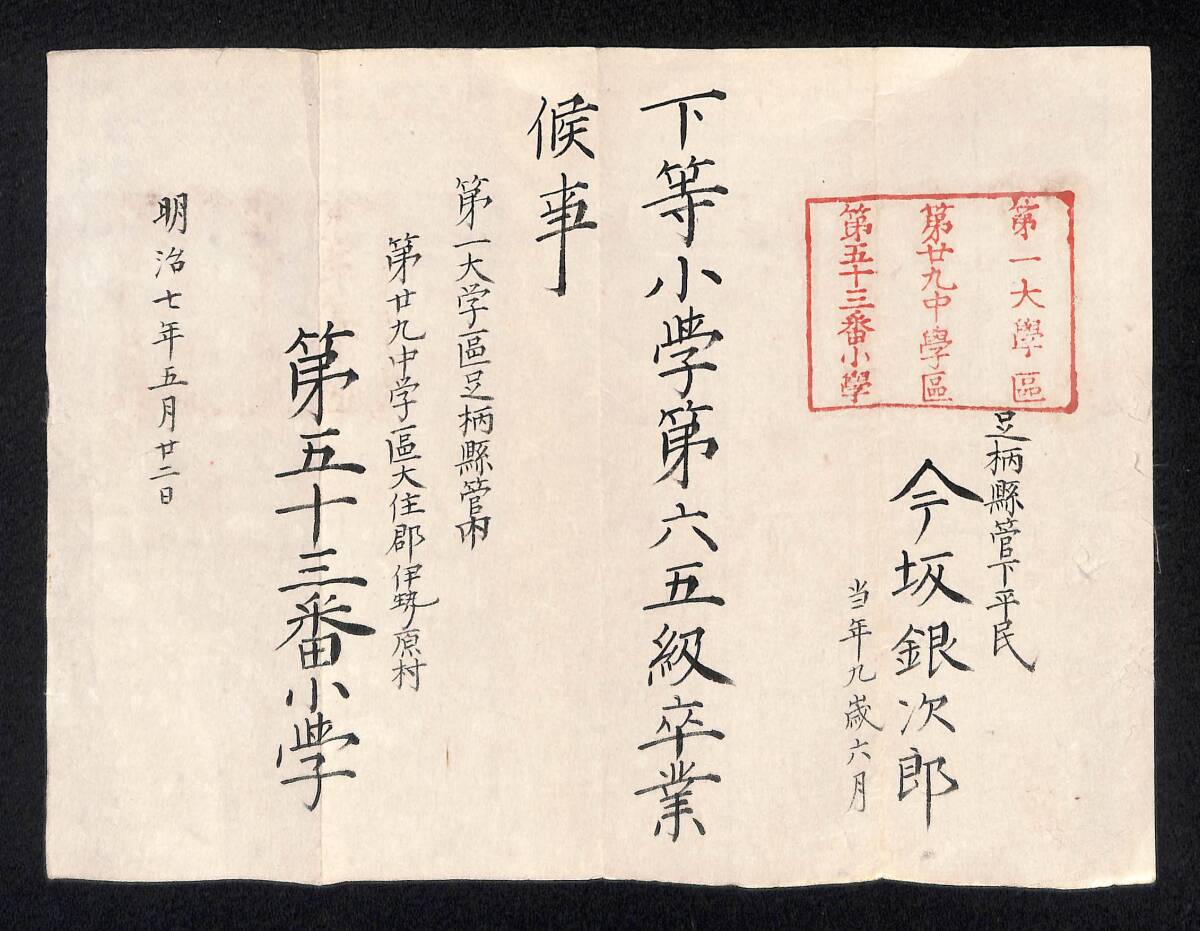 第一大學區
第廿九中學區
第五十三番小學
足柄縣管下平民
今坂銀次郎
当年九歳六月
下等小學第六五級卒業
候事
第一大学區足柄縣管内
第廿九中学區大住郡伊勢原村
第五十三番小學
明治七年五月廿二日